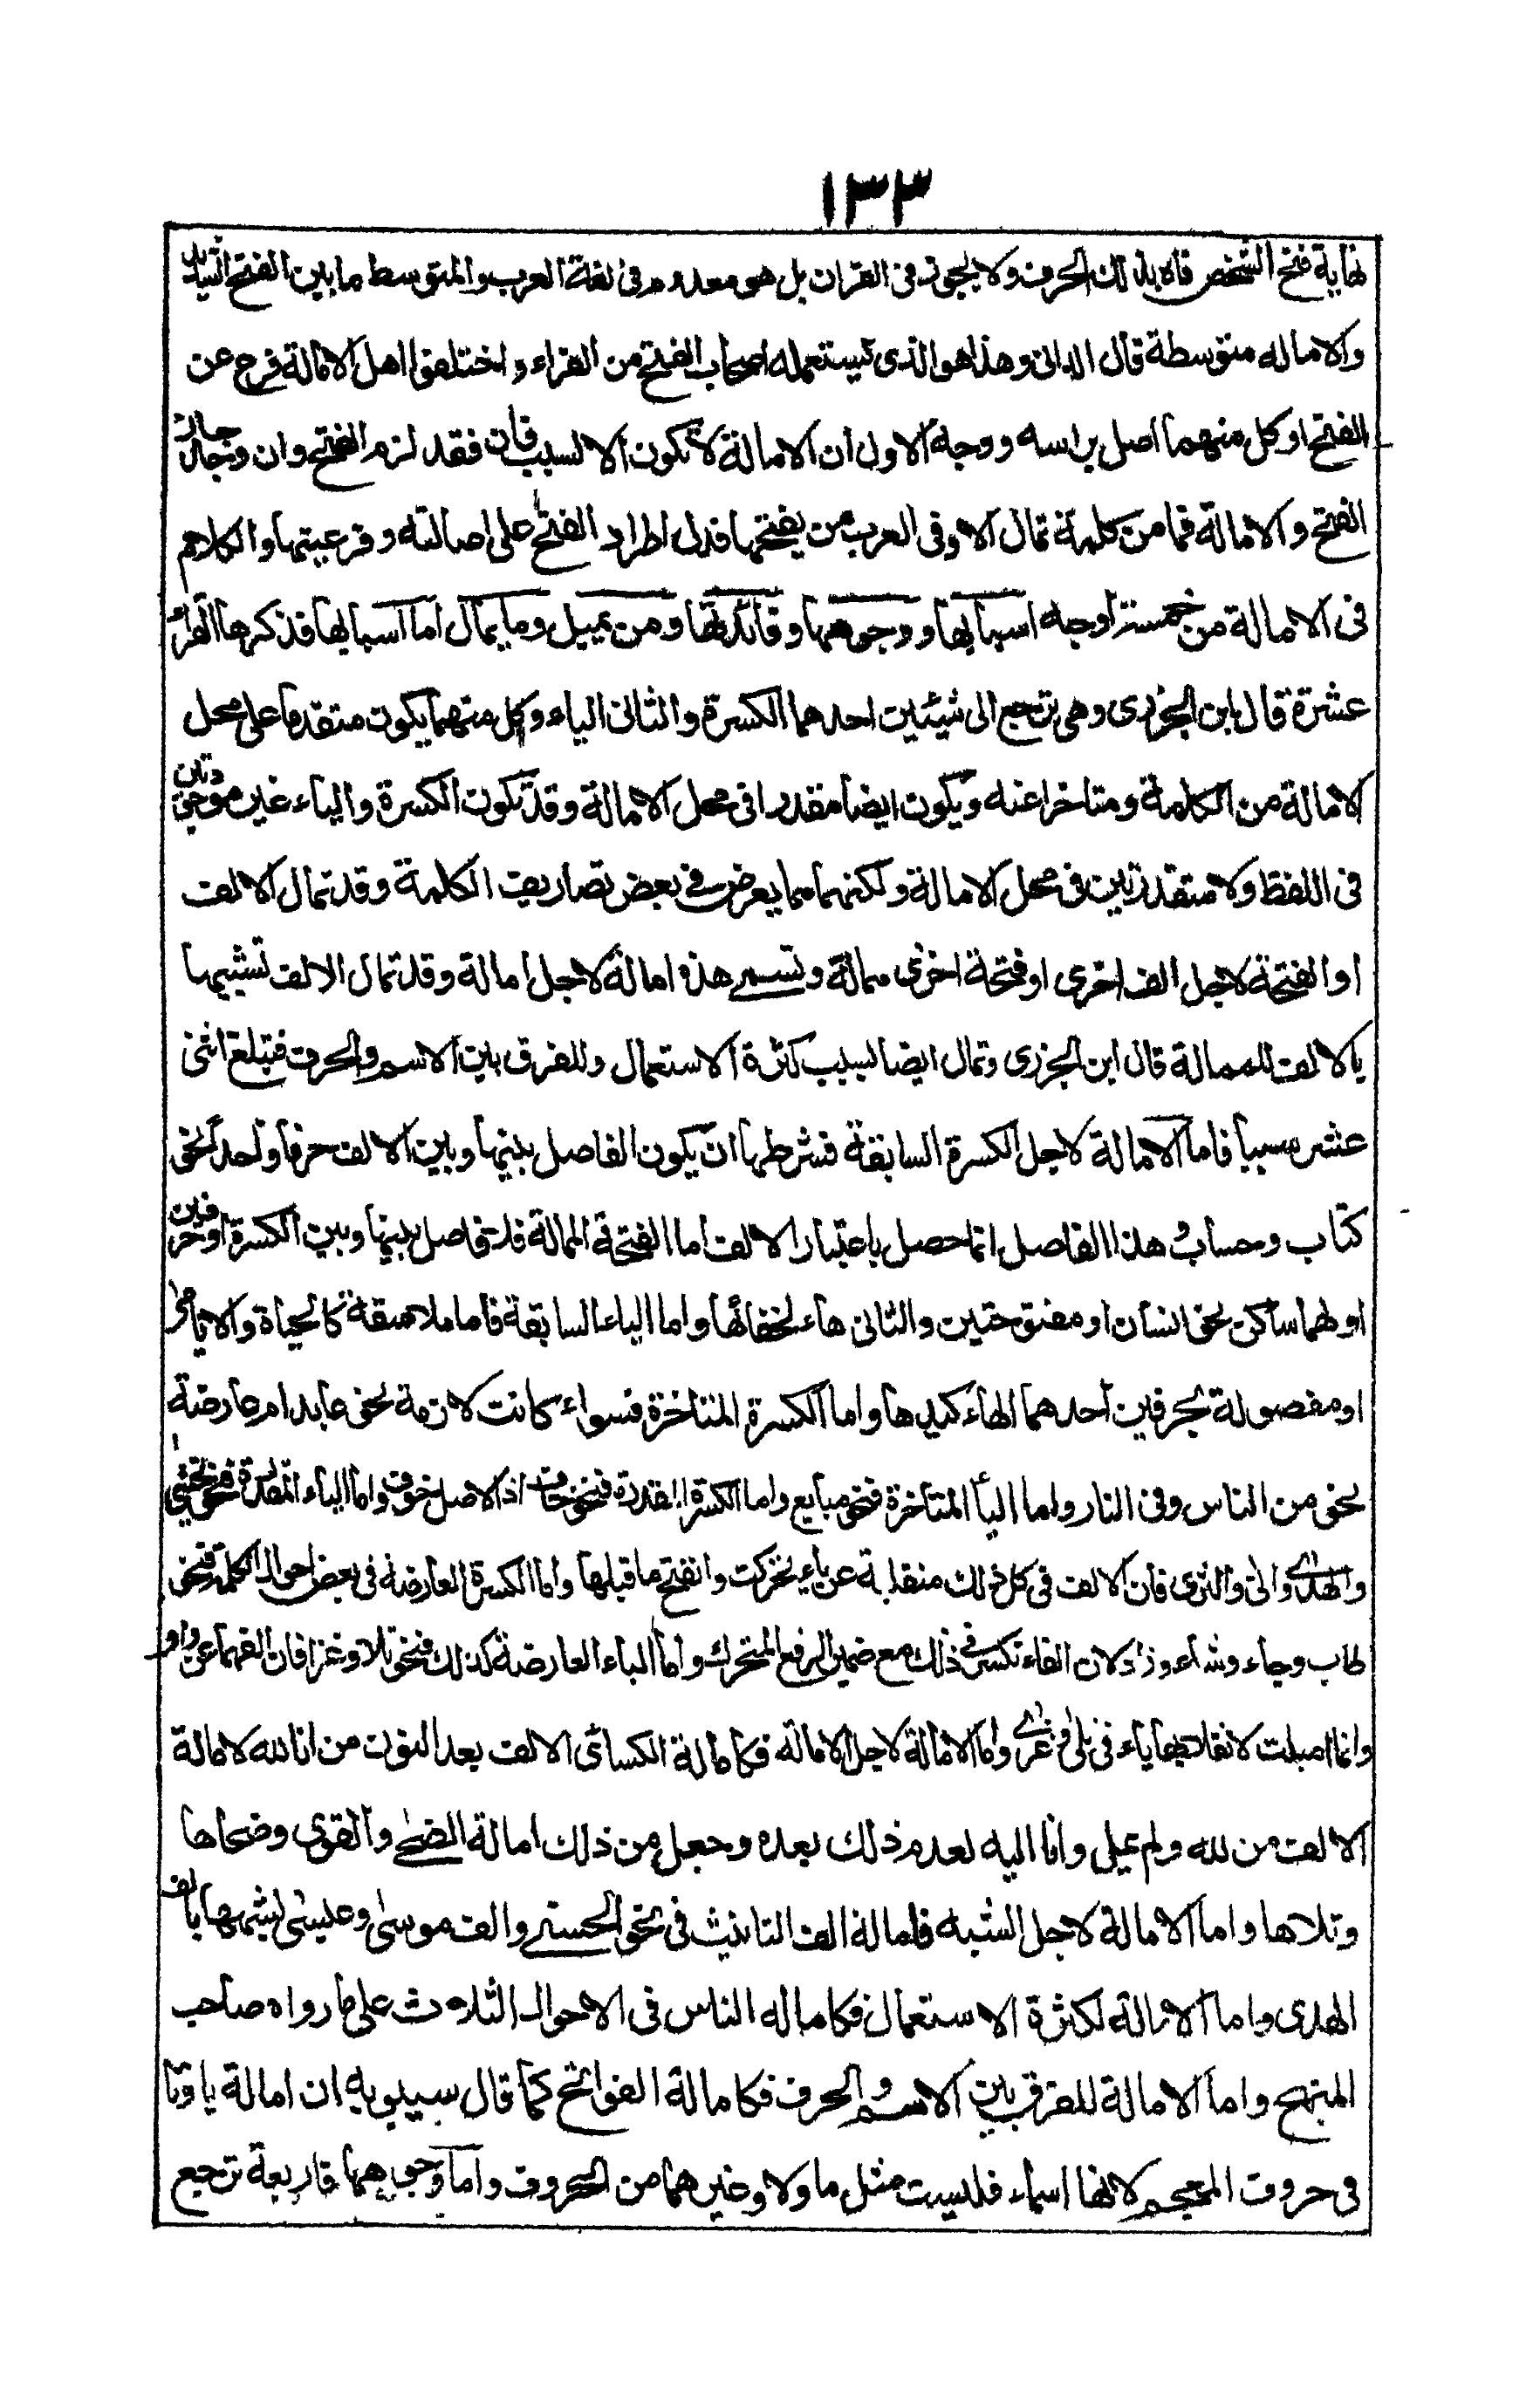 ١٣٣
نهاية فتح الشخص فاه بذلك الحرف ولا يجوز فى القران بل هو معدوم فى لغة العرب والمتوسط ما بين الفتح الشديد
والاماله متوسطة قال الدانى وهذا هو الذى يستعمله اصحاب الفتح من القراء واختلفوا اهل الامالة فرع عن
الفتح او كل منهما اصل براسه ووجه الاول ان الامالة لا تكون الا لسبب فان فقد لزم الفتح وان وجد جاز
الفتح والامالة فما من كلمة تمال الا وفى العرب من يفتحها فدل اطراد الفتح على اصالته وفرعيتها والكلام
فى الامالة من خمسة اوجه اسبابها ووجوهها وفائدتها ومن يميل وما يمال اما اسبابها فذكرها القراء
عشرة قال ابن الجزرى وهى ترجع الى شيئين احدهما الكسرة والثانى الياء وكل منهما يكون متقدما على محل
الامالة من الكلمة ومتاخرا عنه ويكون ايضا مقدرا فى محل الامالة وقد تكون الكسرة والياء غير موجودتين
فى اللفظ ولا متقدرتين فى محل الامالة ولكنهما مما يعرض فى بعض تصاريف الكلمة وقد تمال الالف
او الفتحة لاجل الف اخرى او فتحة اخرى ممالة وتسمى هذه امالة لاجل امالة وقد تمال الالف تشبيها
بالالف للممالة قال ابن الجزرى وتمال ايضا لسبب كثرة الاستعمال وللفرق بين الاسم والحرف فتبلغ اثنى
عشر سببا فاما الامالة لاجل الكسرة السابقة فشرطها ان يكون الفاصل بينها وبين الالف حرفا واحدا نحو
كتاب وحساب وهذا الفاصل انما حصل باعتبار الالف اما الفتحة الممالة فلا فاصل بينها وبين الكسرة او حرفين
اولهما ساكن نحو انسان او مفتوحتين والثانى هاء لخفائها واما الياء السابقة فاما ملاصقة كالحياة والايامى
او مفصولة بحرفين احدهما الهاء كيدها واما الكسرة المتاخرة فسواء كانت لازمة نحو عابد ام عارضة
نحو من الناس وفى النار واما اليأ المتاخرة فنحو مبايع واما الكسرة المقدرة فنحو خاف اذ الاصل خوف واما الياء المقدرة فنحو يخشى
والهدى واتى والثرى فان الالف فى كل ذلك منقلبة عن ياء تحركت وانفتح ما قبلها واما الكسرة العارضة فى بعض احوال الكلمة فنحو
طاب وجاء وشاء وزاد لان الفاء تكسر فى ذلك مع ضمير الرفع المتحرك واما الياء العارضة كذلك فنحو تلا وغزا فان الفهما عن واو
وانما اميلت لانقلابها ياء فى تلى وغزى واما الامالة لاجل الامالة فكامالة الكسائى الالف بعد النون من انا لله لامالة
الالف من لله ولم يمل وانا اليه لعدم ذلك بعده وجعل من ذلك امالة الضحى والقوى وضحاها
وتلاها واما الامالة لاجل الشبه فامالة الف التانيث فى نحو الحسنى والف موسى وعيسى لشبهها بالف
الهدى واما الامالة لكثرة الاستعمال فكاماله الناس فى الاحوال الثلاث على ما رواه صاحب
المبهج واما الامالة للفرق بين الاسم والحرف فكامالة الفواتح كما قال سيبويه ان امالة يا وتا
فى حروف المعجم لانها اسماء فليست مثل ما ولا وغيرهما من الحروف واما وجوهها فاربعة ترجع